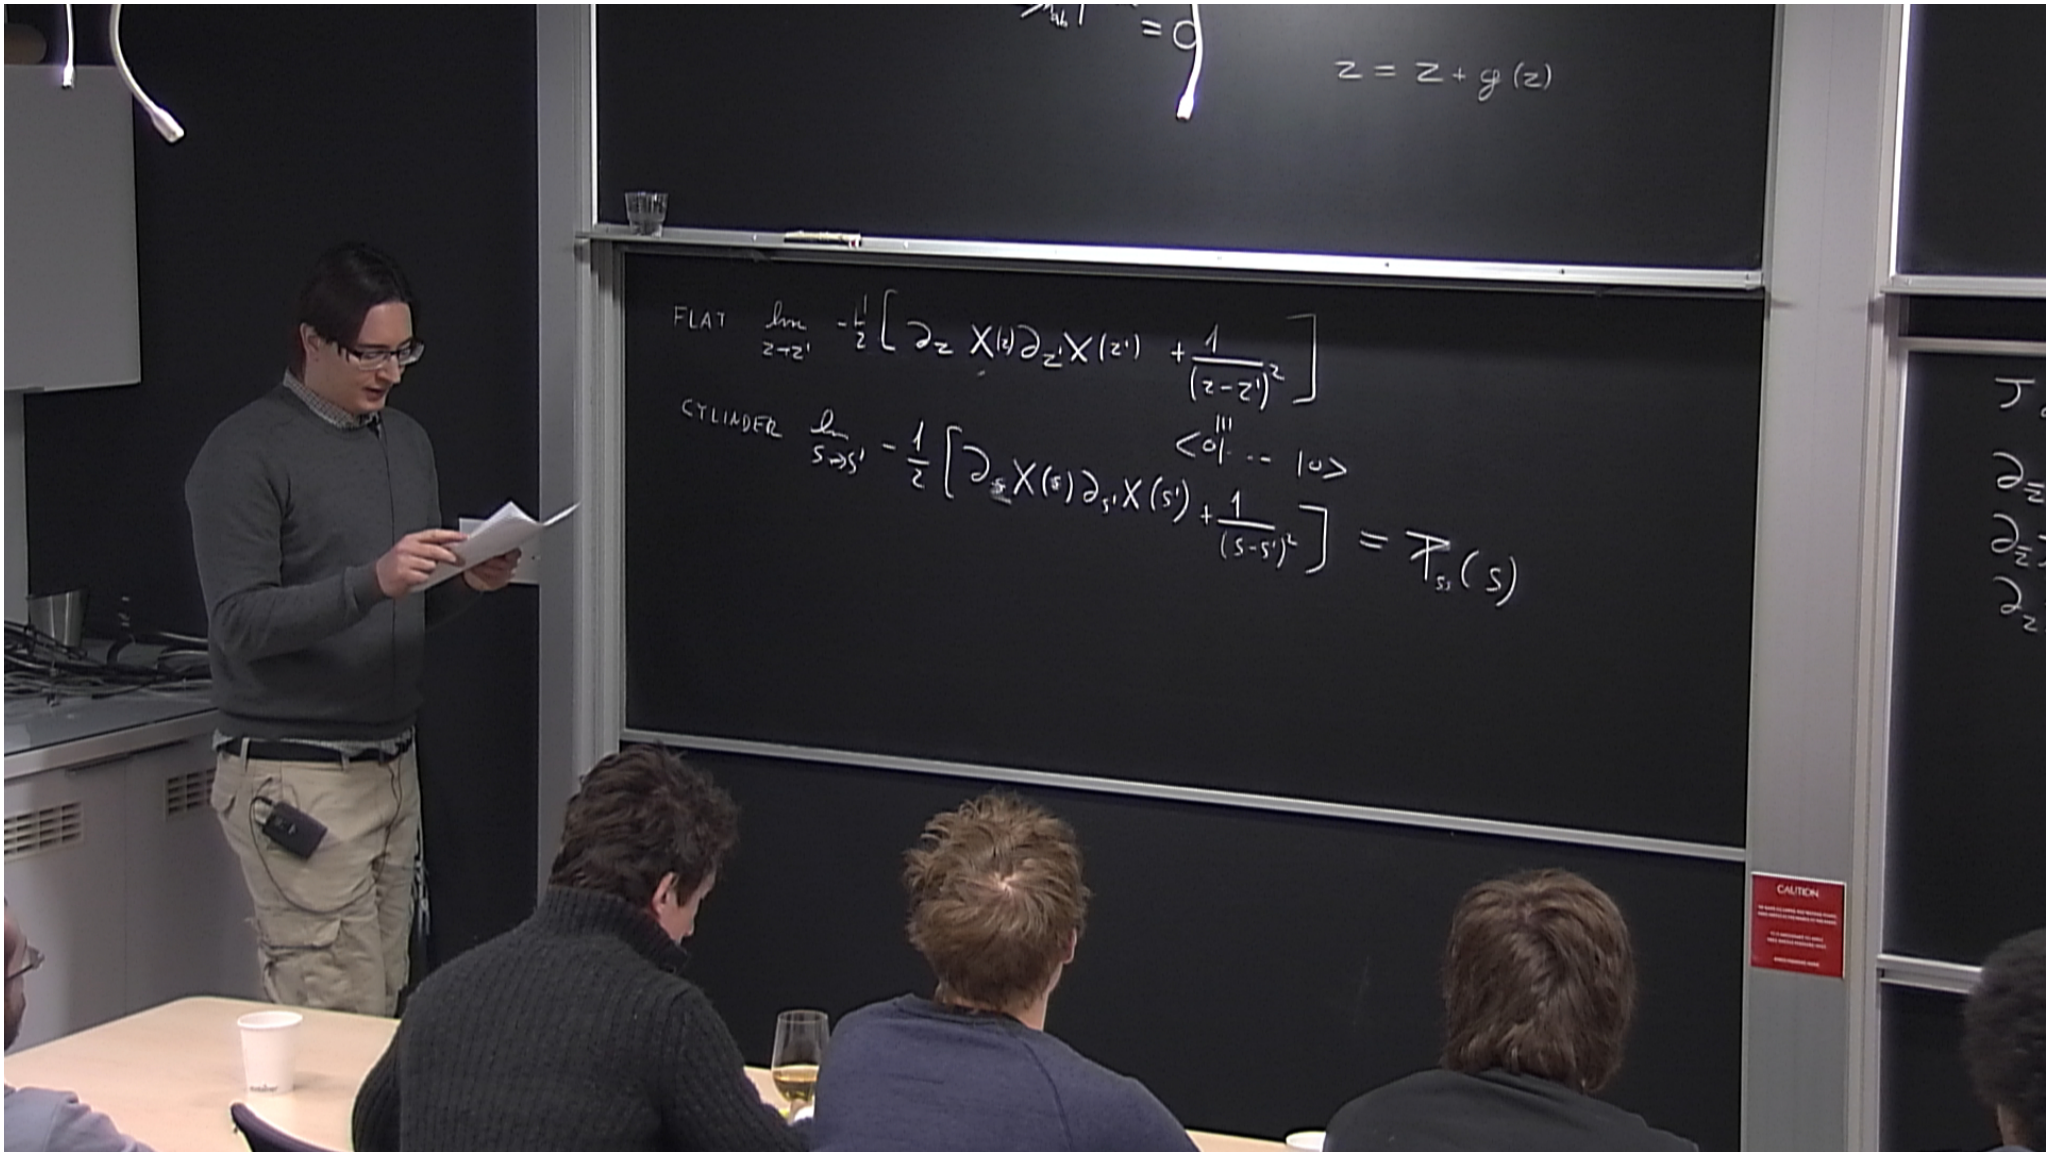 = 0
z = z + g(z)
FLAT lim z→z' -1/2 [ ∂_z X(z) ∂_z' X(z') + 1/(z-z')² ]
<0| ... |0>
CYLINDER lim s→s' - 1/2 [ ∂_s X(s) ∂_s' X(s') + 1/(s-s')² ] = T_ss(s)
T
∂_z̄
∂_z̄
∂_z
CAUTION